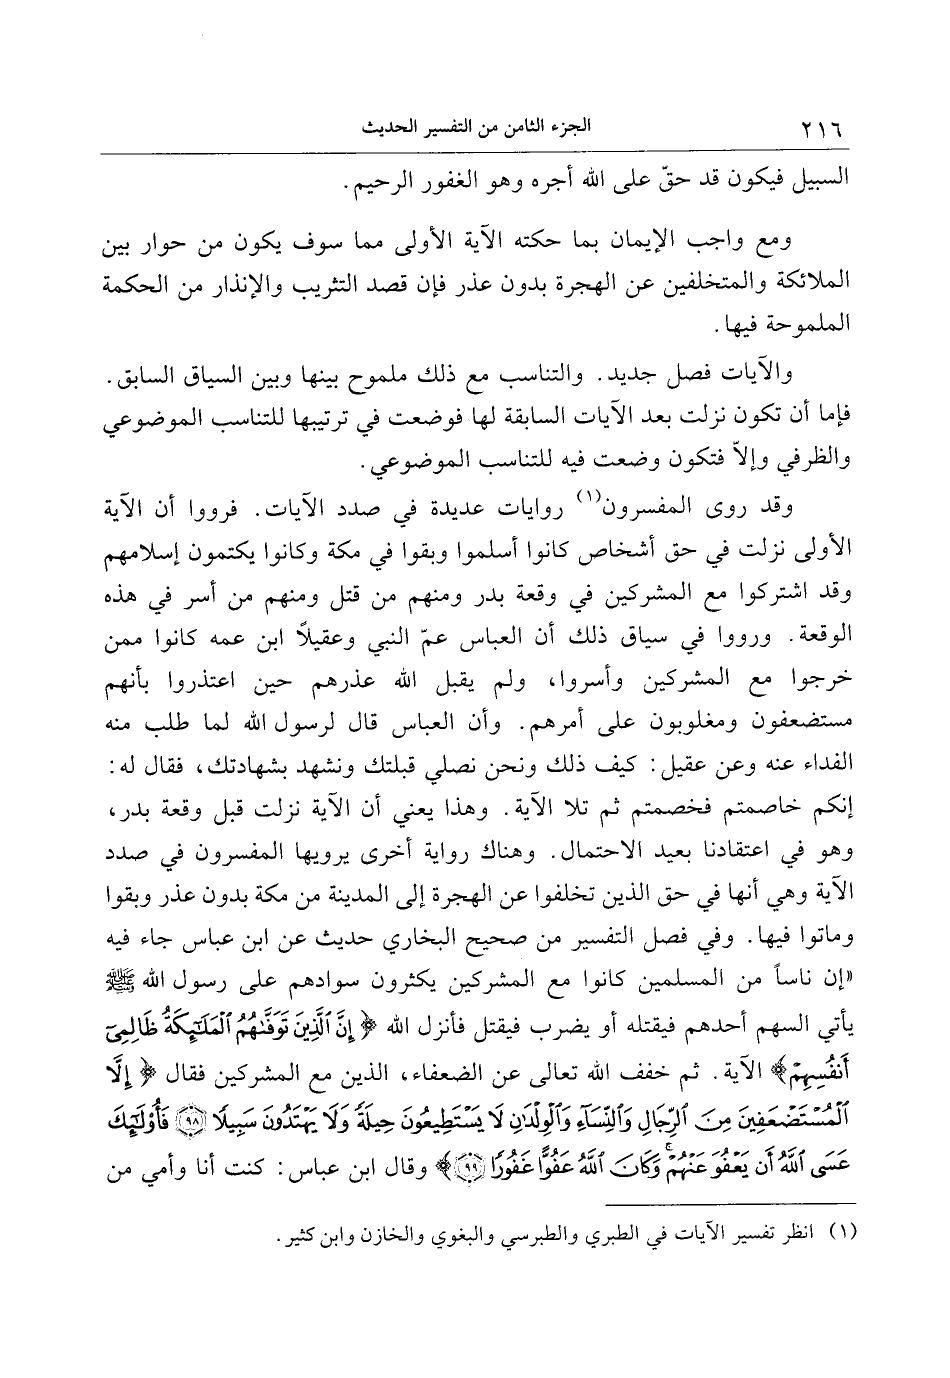 ٢١٦ الجزء الثامن من التفسير الحديث
السبيل فيكون قد حقّ على الله أجره وهو الغفور الرحيم.
ومع واجب الإيمان بما حكته الآية الأولى مما سوف يكون من حوار بين
الملائكة والمتخلفين عن الهجرة بدون عذر فإن قصد التثريب والإنذار من الحكمة
الملموحة فيها.
والآيات فصل جديد. والتناسب مع ذلك ملموح بينها وبين السياق السابق.
فإما أن تكون نزلت بعد الآيات السابقة لها فوضعت في ترتيبها للتناسب الموضوعي
والظرفي وإلاّ فتكون وضعت فيه للتناسب الموضوعي.
وقد روى المفسرون(١) روايات عديدة في صدد الآيات. فرووا أن الآية
الأولى نزلت في حق أشخاص كانوا أسلموا وبقوا في مكة وكانوا يكتمون إسلامهم
وقد اشتركوا مع المشركين في وقعة بدر ومنهم من قتل ومنهم من أسر في هذه
الوقعة. ورووا في سياق ذلك أن العباس عمّ النبي وعقيلاً ابن عمه كانوا ممن
خرجوا مع المشركين وأسروا، ولم يقبل الله عذرهم حين اعتذروا بأنهم
مستضعفون ومغلوبون على أمرهم. وأن العباس قال لرسول الله لما طلب منه
الفداء عنه وعن عقيل: كيف ذلك ونحن نصلي قبلتك ونشهد بشهادتك، فقال له:
إنكم خاصمتم فخصمتم ثم تلا الآية. وهذا يعني أن الآية نزلت قبل وقعة بدر،
وهو في اعتقادنا بعيد الاحتمال. وهناك رواية أخرى يرويها المفسرون في صدد
الآية وهي أنها في حق الذين تخلفوا عن الهجرة إلى المدينة من مكة بدون عذر وبقوا
وماتوا فيها. وفي فصل التفسير من صحيح البخاري حديث عن ابن عباس جاء فيه
«إن ناساً من المسلمين كانوا مع المشركين يكثرون سوادهم على رسول الله ﷺ
يأتي السهم أحدهم فيقتله أو يضرب فيقتل فأنزل الله ﴿إِنَّ ٱلَّذِينَ تَوَفَّىٰهُمُ ٱلْمَلَٰٓئِكَةُ ظَالِمِىٓ
أَنفُسِهِمْ﴾ الآية. ثم خفف الله تعالى عن الضعفاء، الذين مع المشركين فقال ﴿إِلَّا
ٱلْمُسْتَضْعَفِينَ مِنَ ٱلرِّجَالِ وَٱلنِّسَآءِ وَٱلْوِلْدَٰنِ لَا يَسْتَطِيعُونَ حِيلَةً وَلَا يَهْتَدُونَ سَبِيلًا ٩٨ فَأُو۟لَٰٓئِكَ
عَسَى ٱللَّهُ أَن يَعْفُوَ عَنْهُمْ ۚ وَكَانَ ٱللَّهُ عَفُوًّا غَفُورًا ٩٩﴾ وقال ابن عباس: كنت أنا وأمي من
(١) انظر تفسير الآيات في الطبري والطبرسي والبغوي والخازن وابن كثير.